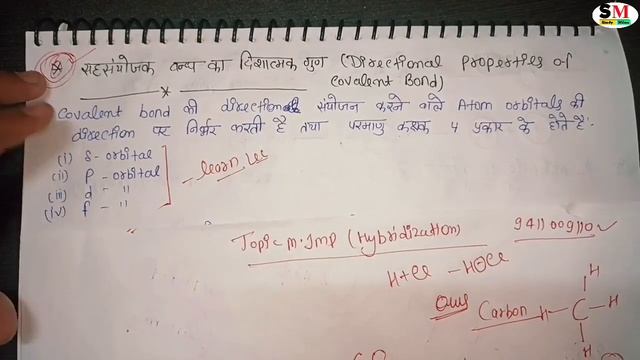 SM
Study Mines
सहसंयोजक बन्ध का दिशात्मक गुण (Directional Properties of
Covalent Bond)
Covalent bond की directional संयोजन करने वाले Atom orbitals की
direction पर निर्भर करती है तथा परमाणु कक्षक 4 प्रकार के होते है:-
(i) s-orbital
(ii) p-orbital
(iii) d- "
(iv) f- "
Topic m.Imp (Hybridization)
9411009110
H+Cl - HCl
Carbon
H
H-C-H
H